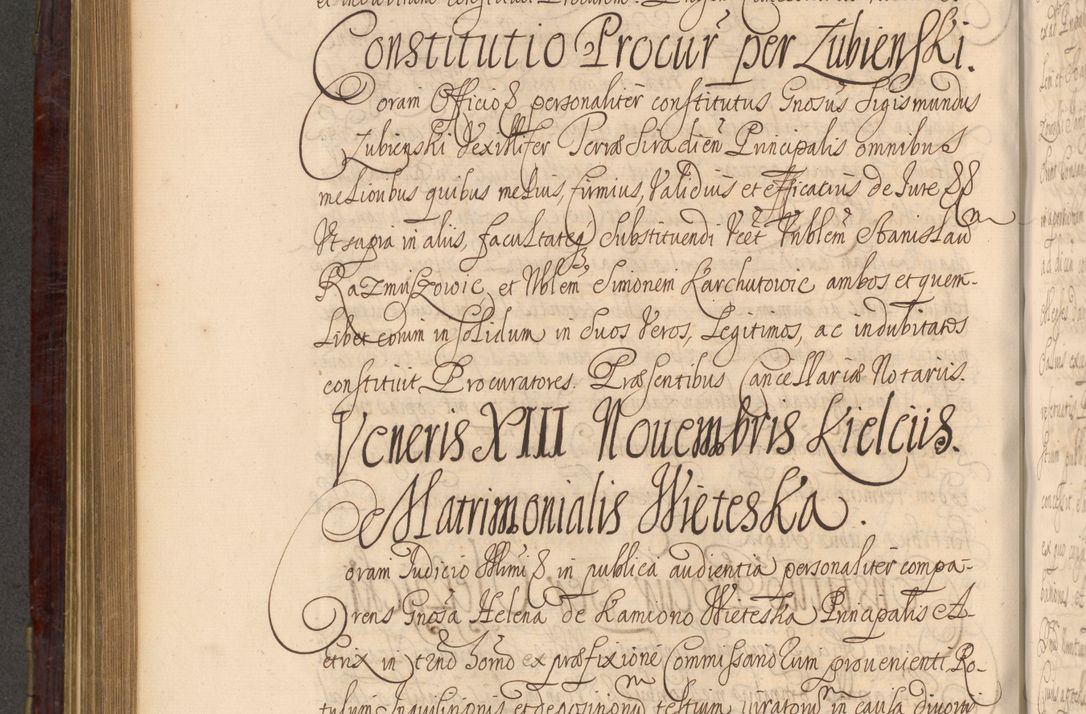 Constitutio Procur per Zubienski.
Coram Officio & personaliter constitutus Gnosus Sigismundus
Zubienski Vexillifer Terræ Siradien Principalis omnibus
melioribus quibus melius, firmius, Validius et efficatius de Iure &&
Ut supra in aliis, facultateq substituendi Vcet Vnblem Stanislau
Kazmirzowic, et Nblem Simonem Karchutowic ambos et quem-
Libet eorum in solidum in suos Veros, Legitimos, ac indubitatos
constituit Procuratores. Præsentibus Cancellariæ Notariis.
Veneris XIII Nouembris Kielciis.
Matrimonialis Wieteska.
Coram Iudicio Illmi & in publica audientia personaliter compa-
rens Gnosa Helena de Kamiono Wieteska Principalis A-
ctrix in termino ex præfixione Commissariorum provenienti Ro-
tulum Inquisitionis et depositionum testium iuratorum in causa divortii